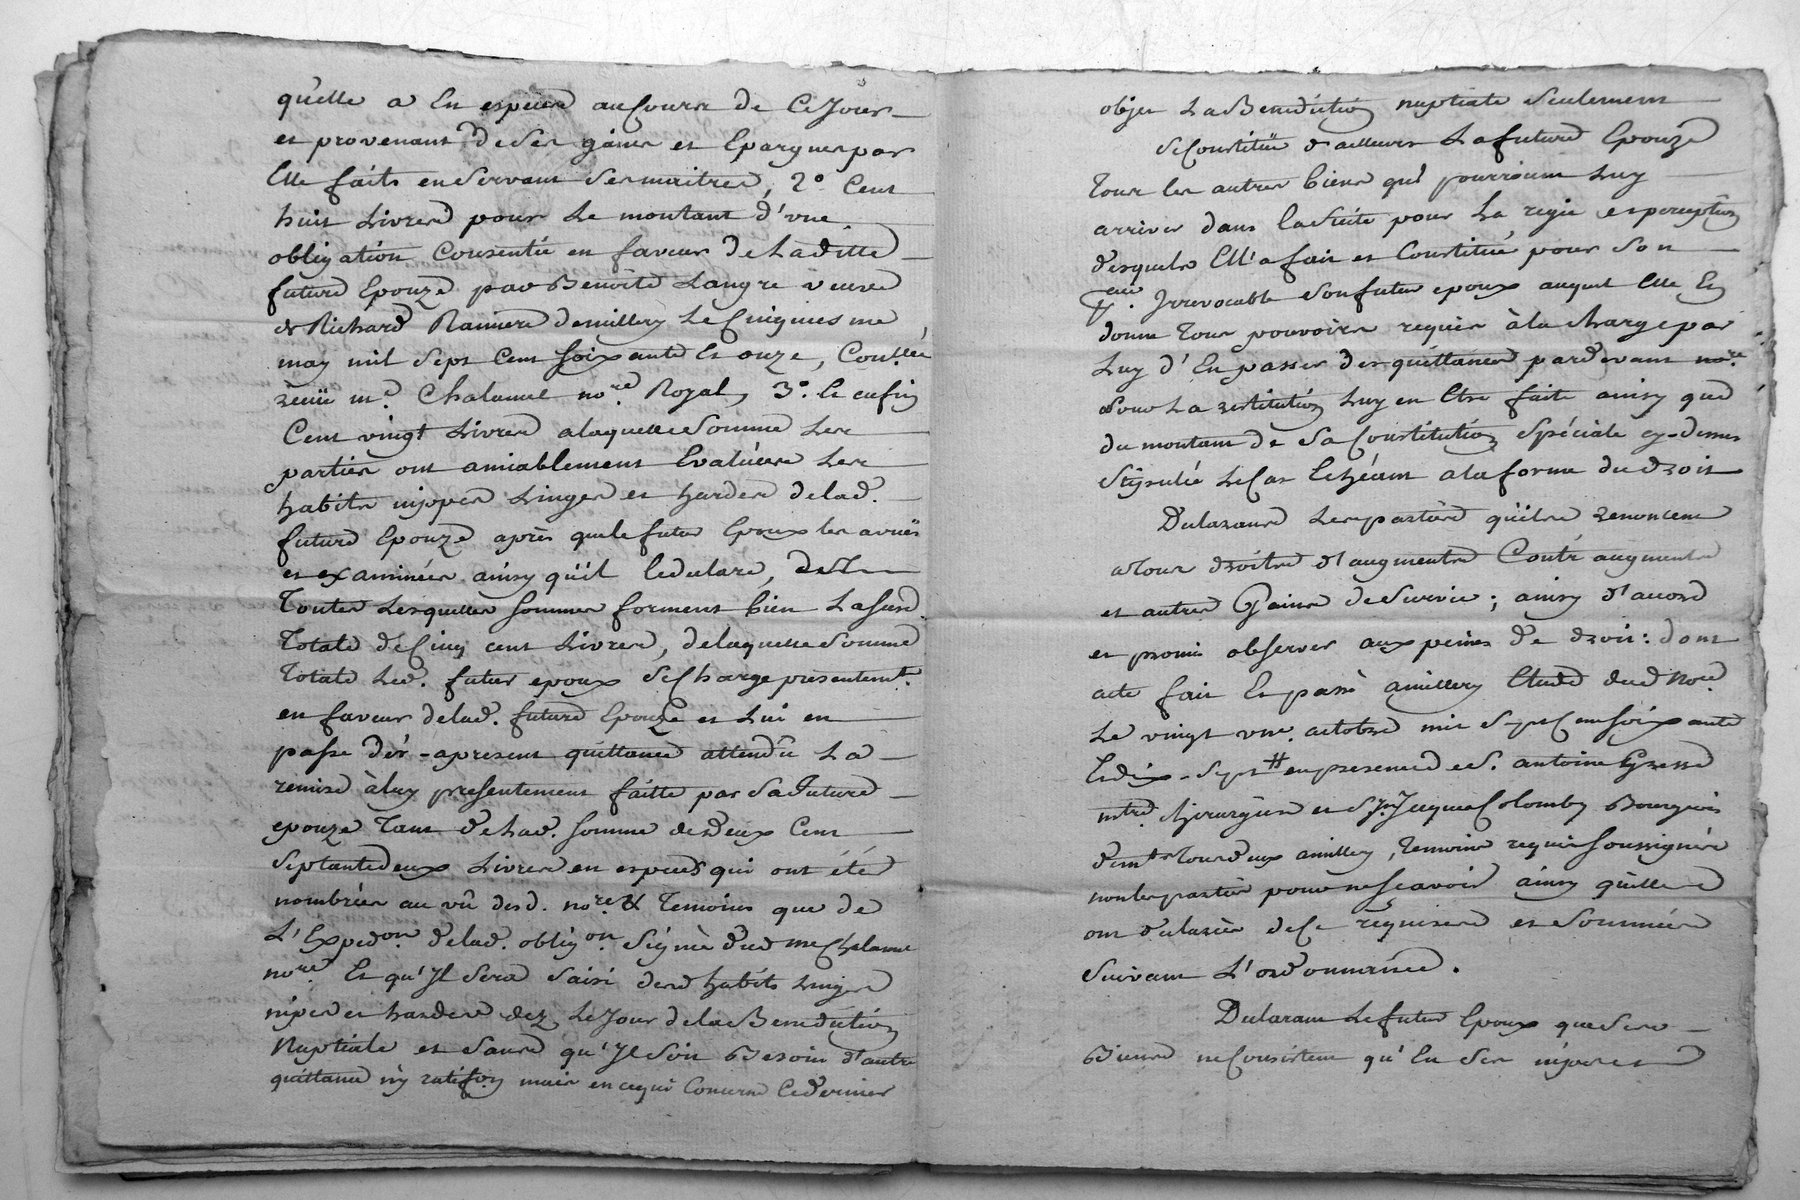 qu'elle a En especes au Cours de Ce Jour
et provenant de Ses gaines et Epargnes par
Elle faits en Servant Ses maitres, 2° Cent
huit Livres pour Le montant d'vne
obligation Consentie en faveur de Laditte
future Epouze par Benoite Langre veuve
de Richard Raniere demillery Le Cinquiesme
may mil Sept Cent Soixante Et onze, Conllée
recüe me. Chalamel nore. Royal, 3°. Et enfin
Cent vingt Livres a laquelle Somme Les
parties ont amiablement Evaluées Les
habits nippes Linges et hardes de lad.
future Epouze après que le futur Epoux les a vües
et examinées ainsy qu'il le declare,
Toutes Lesquelles Sommes forment bien La Sus.
Totale de Cinq cent Livres, de laquelle Somme
Totale Led. futur epoux Se Charge presentemt.
en faveur de lad. future Epouze et Lui en
passe dès-apresent quittance attendu La
remise à luy presentement faitte par Sa future
epouze Tant de Lad. Somme de deux Cent
Septante deux Livres en especes qui ont été
nombrées au vû desd. nore. & Temoins que de
L'Expedon. de lad. obligon. Signée dud. me Chalamel
nore. Et qu'Il Sera Saisi desd. habits Linges
nipes et hardes dez Le Jour de la Benediction
Nuptiale et Sans qu'Il Soit Besoin d'autre
quittance ny ratifon. mais en ce qui Concerne Ce dernier
objet La Benediction nuptiale Seulement
Se Constitüe d'ailleurs La future Epouze
Tous les autres biens qui pourroient Luy
arriver dans la Suite pour La regie et perception
desquels Ell'a fait et Constitué pour Son
Irrevocable Son futur epoux auquel Elle En
donne Tous pouvoirs requis à la Charge par
Luy d'En passer des quittances pardevant nore.
pour La restitution Luy en Etre faite ainsy que
du montant de Sa Constitution Spéciale cy-dessus
Stipulée Le Cas Echéant a la forme du droit
Declarans Les parties qu'elles renoncent
a Tous droits d'augment Contr'augment
et autres Gains de Survie; ainsy d'accord
et promis observer aux peines de droit: dont
acte fait Et passé a millery Etude dud Nore.
Le vingt vn. octobre mil Sept Cent Soixante
Et dix-Sept # en presence de S. antoine Grasse
mtre. Chirurgien et Sr. Jacques Colomby Bourgeois
demts. Tous deux a millery, Temoins requis Soussignés
non les parties pour ne Scavoir ainsy qu'elles
ont declarées de Ce requises et Sommées
Suivant L'ordonnance.
Declarant Le futur Epoux que Ses
Biens ne Consistent qu'En Ses nipes et